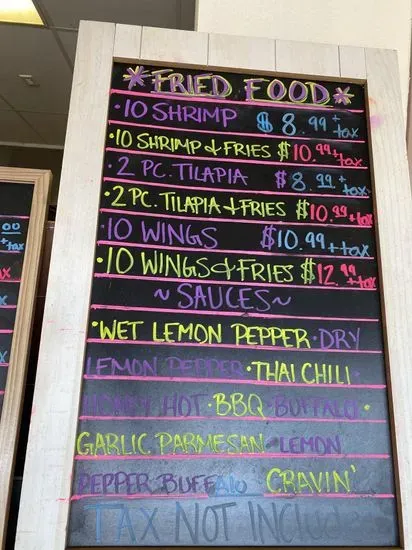 *FRIED FOOD*
·10 SHRIMP $8.99+tax
·10 SHRIMP & FRIES $10.99+tax
·2 PC. TILAPIA $8.99+tax
·2 PC. TILAPIA + FRIES $10.99+tax
·10 WINGS $10.99+tax
·10 WINGS & FRIES $12.99+tax
~SAUCES~
·WET LEMON PEPPER·DRY
LEMON PEPPER·THAI CHILI·
HONEY HOT·BBQ·BUFFALO·
GARLIC PARMESAN·LEMON
PEPPER BUFFALO CRAVIN'
TAX NOT